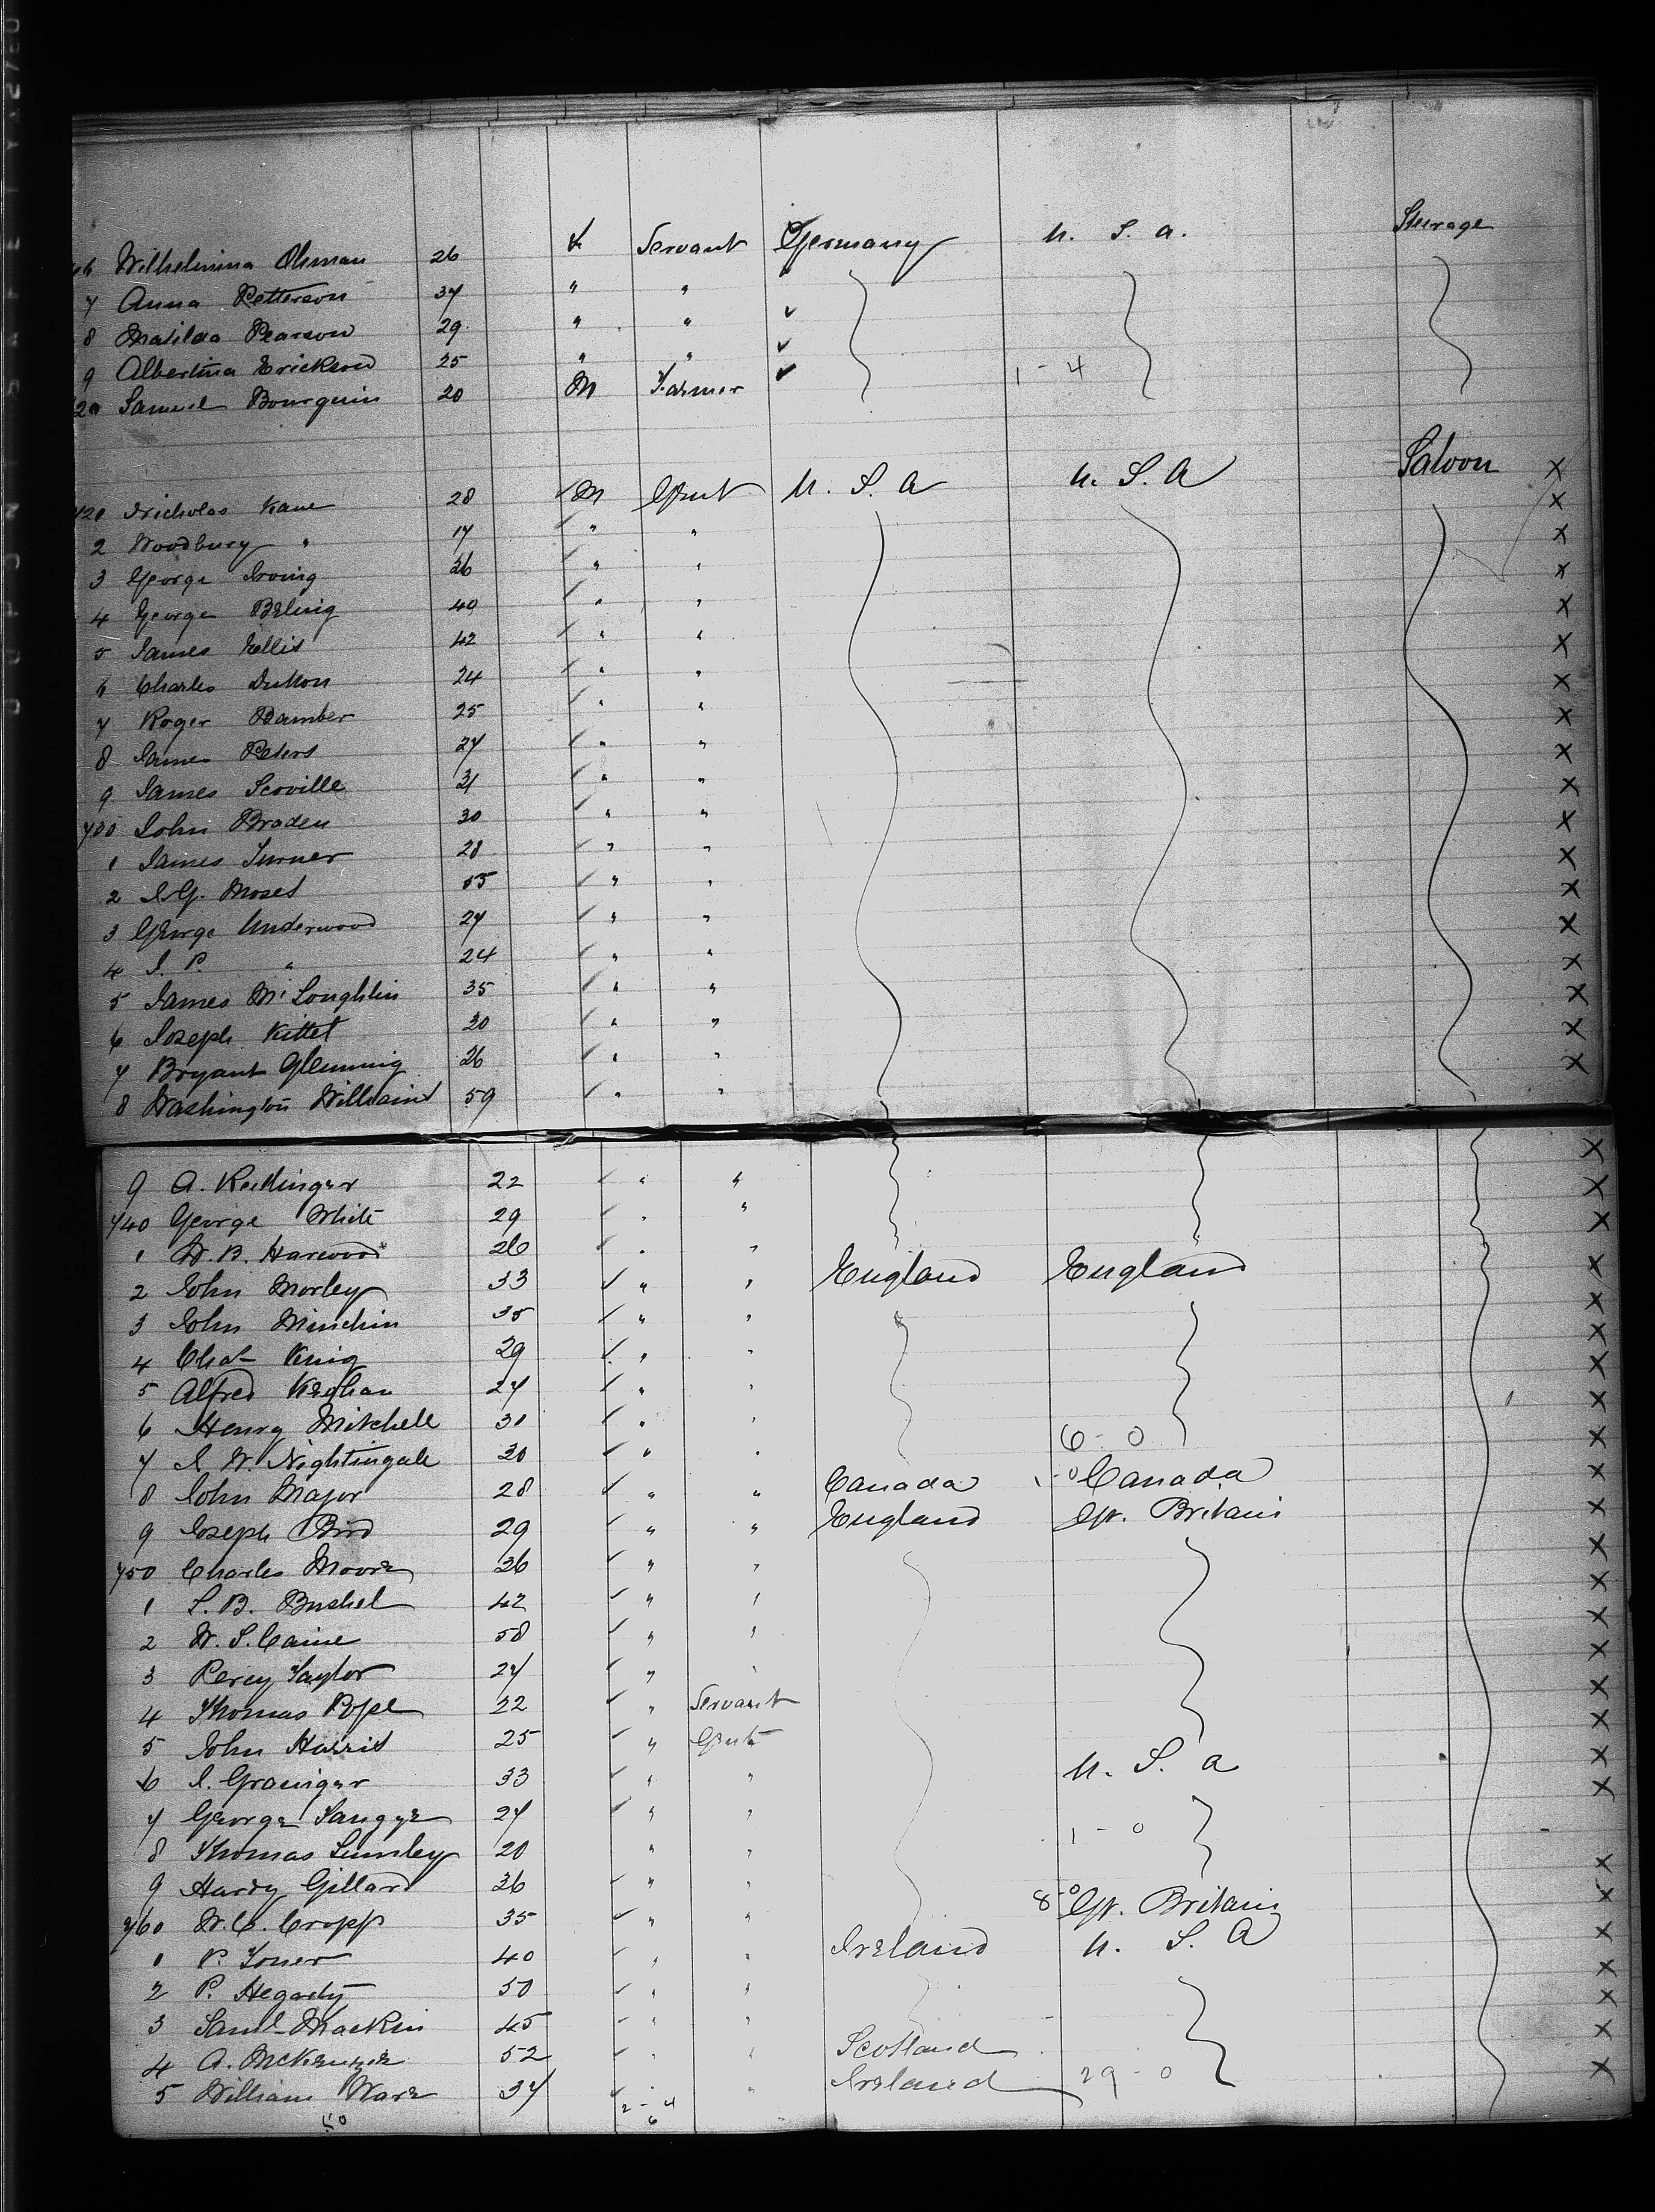 Wilhelmina Ohman 26 Servant Germany U. S. A. Steerage
7 Anna Petterson 37 " "
8 Matilda Pearson 29 " "
9 Albertina Erickson 25 " "
20 Samuel Bourquin 20 M Farmer 1 - 4
721 Nicholas Kane 28 M Gent U. S. A U. S. A Saloon X
2 Woodbury " 17 " " X
3 George Irving 36 " " X
4 George 40 " " X
5 James Ellis 42 " " X
6 Charles Dutton 24 " " X
7 Roger Bamber 25 " " X
8 James Peters 27 " " X
9 James Scoville 21 " " X
730 John Braden 30 " " X
1 James Turner 28 " " X
2 Moses 55 " " X
3 George Underwood 27 " " X
4 " 24 " " X
5 James McLoughlin 35 " " X
6 Joseph Kittel 30 " " X
7 Bryant Glenning 26 " " X
8 Washington Williams 59 " " X
9 A. 22 " " X
740 George White 29 " " X
1 W. B. Harwood 26 " " X
2 John Morley 33 " " England England X
3 John Minchin 35 " " X
4 Chas King 29 " " X
5 Alfred Keohan 27 " " X
6 Henry Mitchell 30 " " X
7 J. W. Nightingale 30 " " 6 - 0 X
8 John Major 28 " " Canada 1 - 0 Canada X
9 Joseph Bird 29 " " England Gt. Britain X
750 Charles Moore 36 " " X
1 S. B. Bushel 42 " " X
2 W. S. Caine 58 " " X
3 Percy Taylor 27 " " X
4 Thomas Pope 32 " Servant X
5 John Harris 25 " Gent X
6 J. Grainger 33 " " U. S. A X
7 George Sangye 27 " " X
8 Thomas Lumley 20 " " 1 - 0
9 Hardy Gillard 36 " " X
760 W. C. Cropp 35 " " 8 - 0 Gt. Britain X
1 P. Toner 40 " " Ireland U. S. A X
2 P. Hegarty 50 " " X
3 Saml Mackin 45 " " X
4 A. McKenzie 52 " " Scotland X
5 William Ware 37 " Ireland 29 - 0 X
50 2 - 4
6